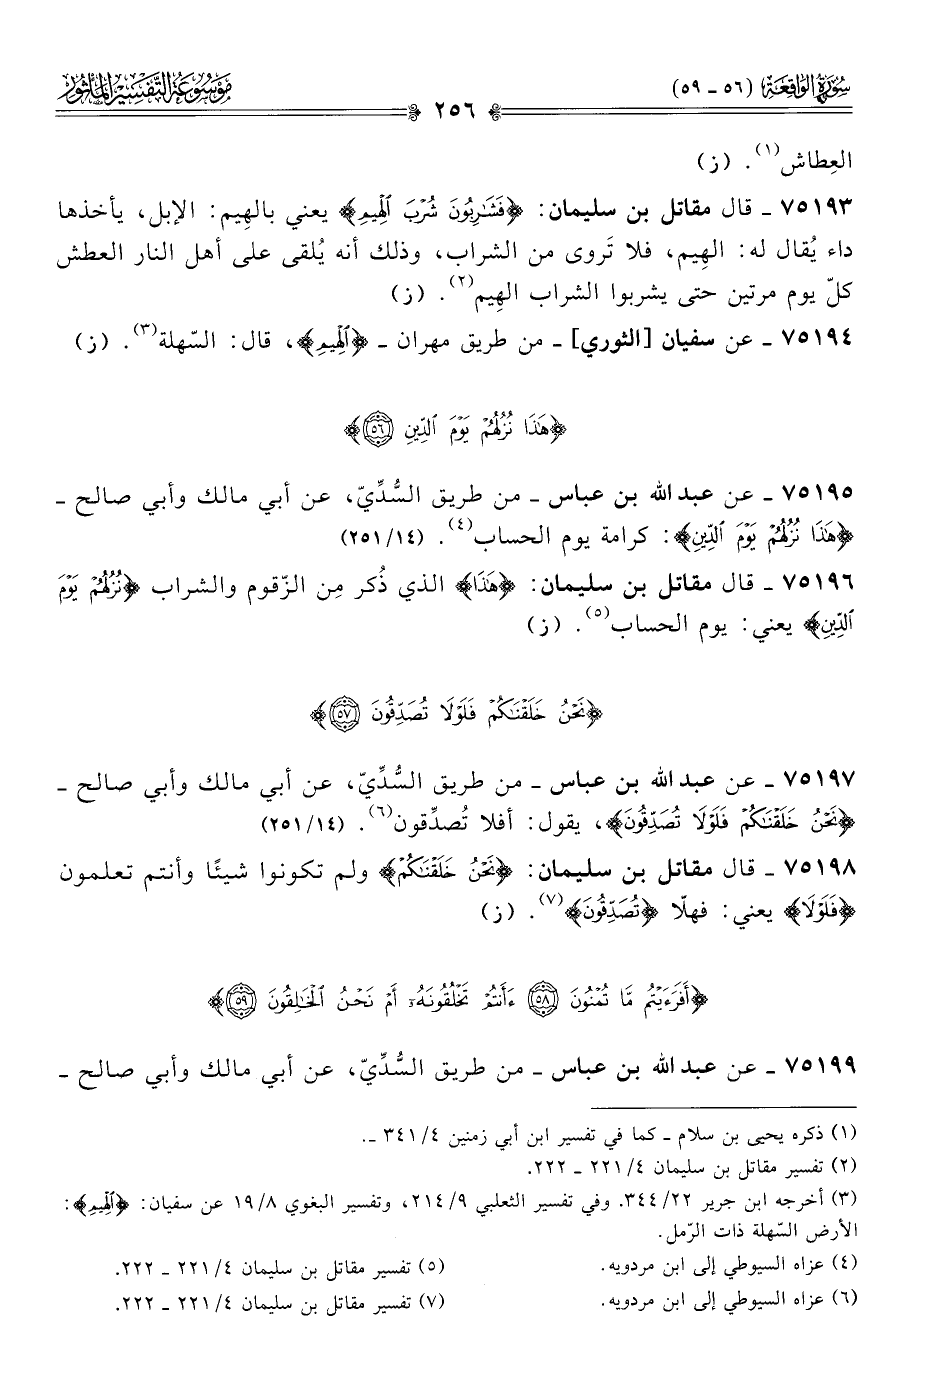 سورة الواقعة (٥٦ - ٥٩)
٢٥٦
موسوعة التفسير المأثور
العِطاش(١). (ز)
٧٥١٩٣ - قال مقاتل بن سليمان: ﴿فَشَٰرِبُونَ شُرْبَ ٱلْهِيمِ﴾ يعني بالهِيم: الإبل، يأخذها
داء يُقال له: الهِيم، فلا تَروى من الشراب، وذلك أنه يُلقى على أهل النار العطش
كلّ يوم مرتين حتى يشربوا الشراب الهِيم(٢). (ز)
٧٥١٩٤ - عن سفيان [الثوري] - من طريق مهران - ﴿ٱلْهِيمِ﴾، قال: السّهلة(٣). (ز)
﴿هَٰذَا نُزُلُهُمْ يَوْمَ ٱلدِّينِ ٥٦﴾
٧٥١٩٥ - عن عبد الله بن عباس - من طريق السُّدِّيّ، عن أبي مالك وأبي صالح -
﴿هَٰذَا نُزُلُهُمْ يَوْمَ ٱلدِّينِ﴾: كرامة يوم الحساب(٤). (٢٥١/١٤)
٧٥١٩٦ - قال مقاتل بن سليمان: ﴿هَٰذَا﴾ الذي ذُكر مِن الزّقوم والشراب ﴿نُزُلُهُمْ يَوْمَ
ٱلدِّينِ﴾ يعني: يوم الحساب(٥). (ز)
﴿نَحْنُ خَلَقْنَٰكُمْ فَلَوْلَا تُصَدِّقُونَ ٥٧﴾
٧٥١٩٧ - عن عبد الله بن عباس - من طريق السُّدِّيّ، عن أبي مالك وأبي صالح -
﴿نَحْنُ خَلَقْنَٰكُمْ فَلَوْلَا تُصَدِّقُونَ﴾، يقول: أفلا تُصدِّقون(٦). (٢٥١/١٤)
٧٥١٩٨ - قال مقاتل بن سليمان: ﴿نَحْنُ خَلَقْنَٰكُمْ﴾ ولم تكونوا شيئًا وأنتم تعلمون
﴿فَلَوْلَا﴾ يعني: فهلّا ﴿تُصَدِّقُونَ﴾(٧). (ز)
﴿أَفَرَءَيْتُم مَّا تُمْنُونَ ٥٨ ءَأَنتُمْ تَخْلُقُونَهُۥٓ أَمْ نَحْنُ ٱلْخَٰلِقُونَ ٥٩﴾
٧٥١٩٩ - عن عبد الله بن عباس - من طريق السُّدِّيّ، عن أبي مالك وأبي صالح -
(١) ذكره يحيى بن سلام - كما في تفسير ابن أبي زمنين ٣٤١/٤ -.
(٢) تفسير مقاتل بن سليمان ٢٢١/٤ - ٢٢٢.
(٣) أخرجه ابن جرير ٣٤٤/٢٢. وفي تفسير الثعلبي ٢١٤/٩، وتفسير البغوي ١٩/٨ عن سفيان: ﴿ٱلْهِيمِ﴾:
الأرض السّهلة ذات الرّمل.
(٤) عزاه السيوطي إلى ابن مردويه. (٥) تفسير مقاتل بن سليمان ٢٢١/٤ - ٢٢٢.
(٦) عزاه السيوطي إلى ابن مردويه. (٧) تفسير مقاتل بن سليمان ٢٢١/٤ - ٢٢٢.